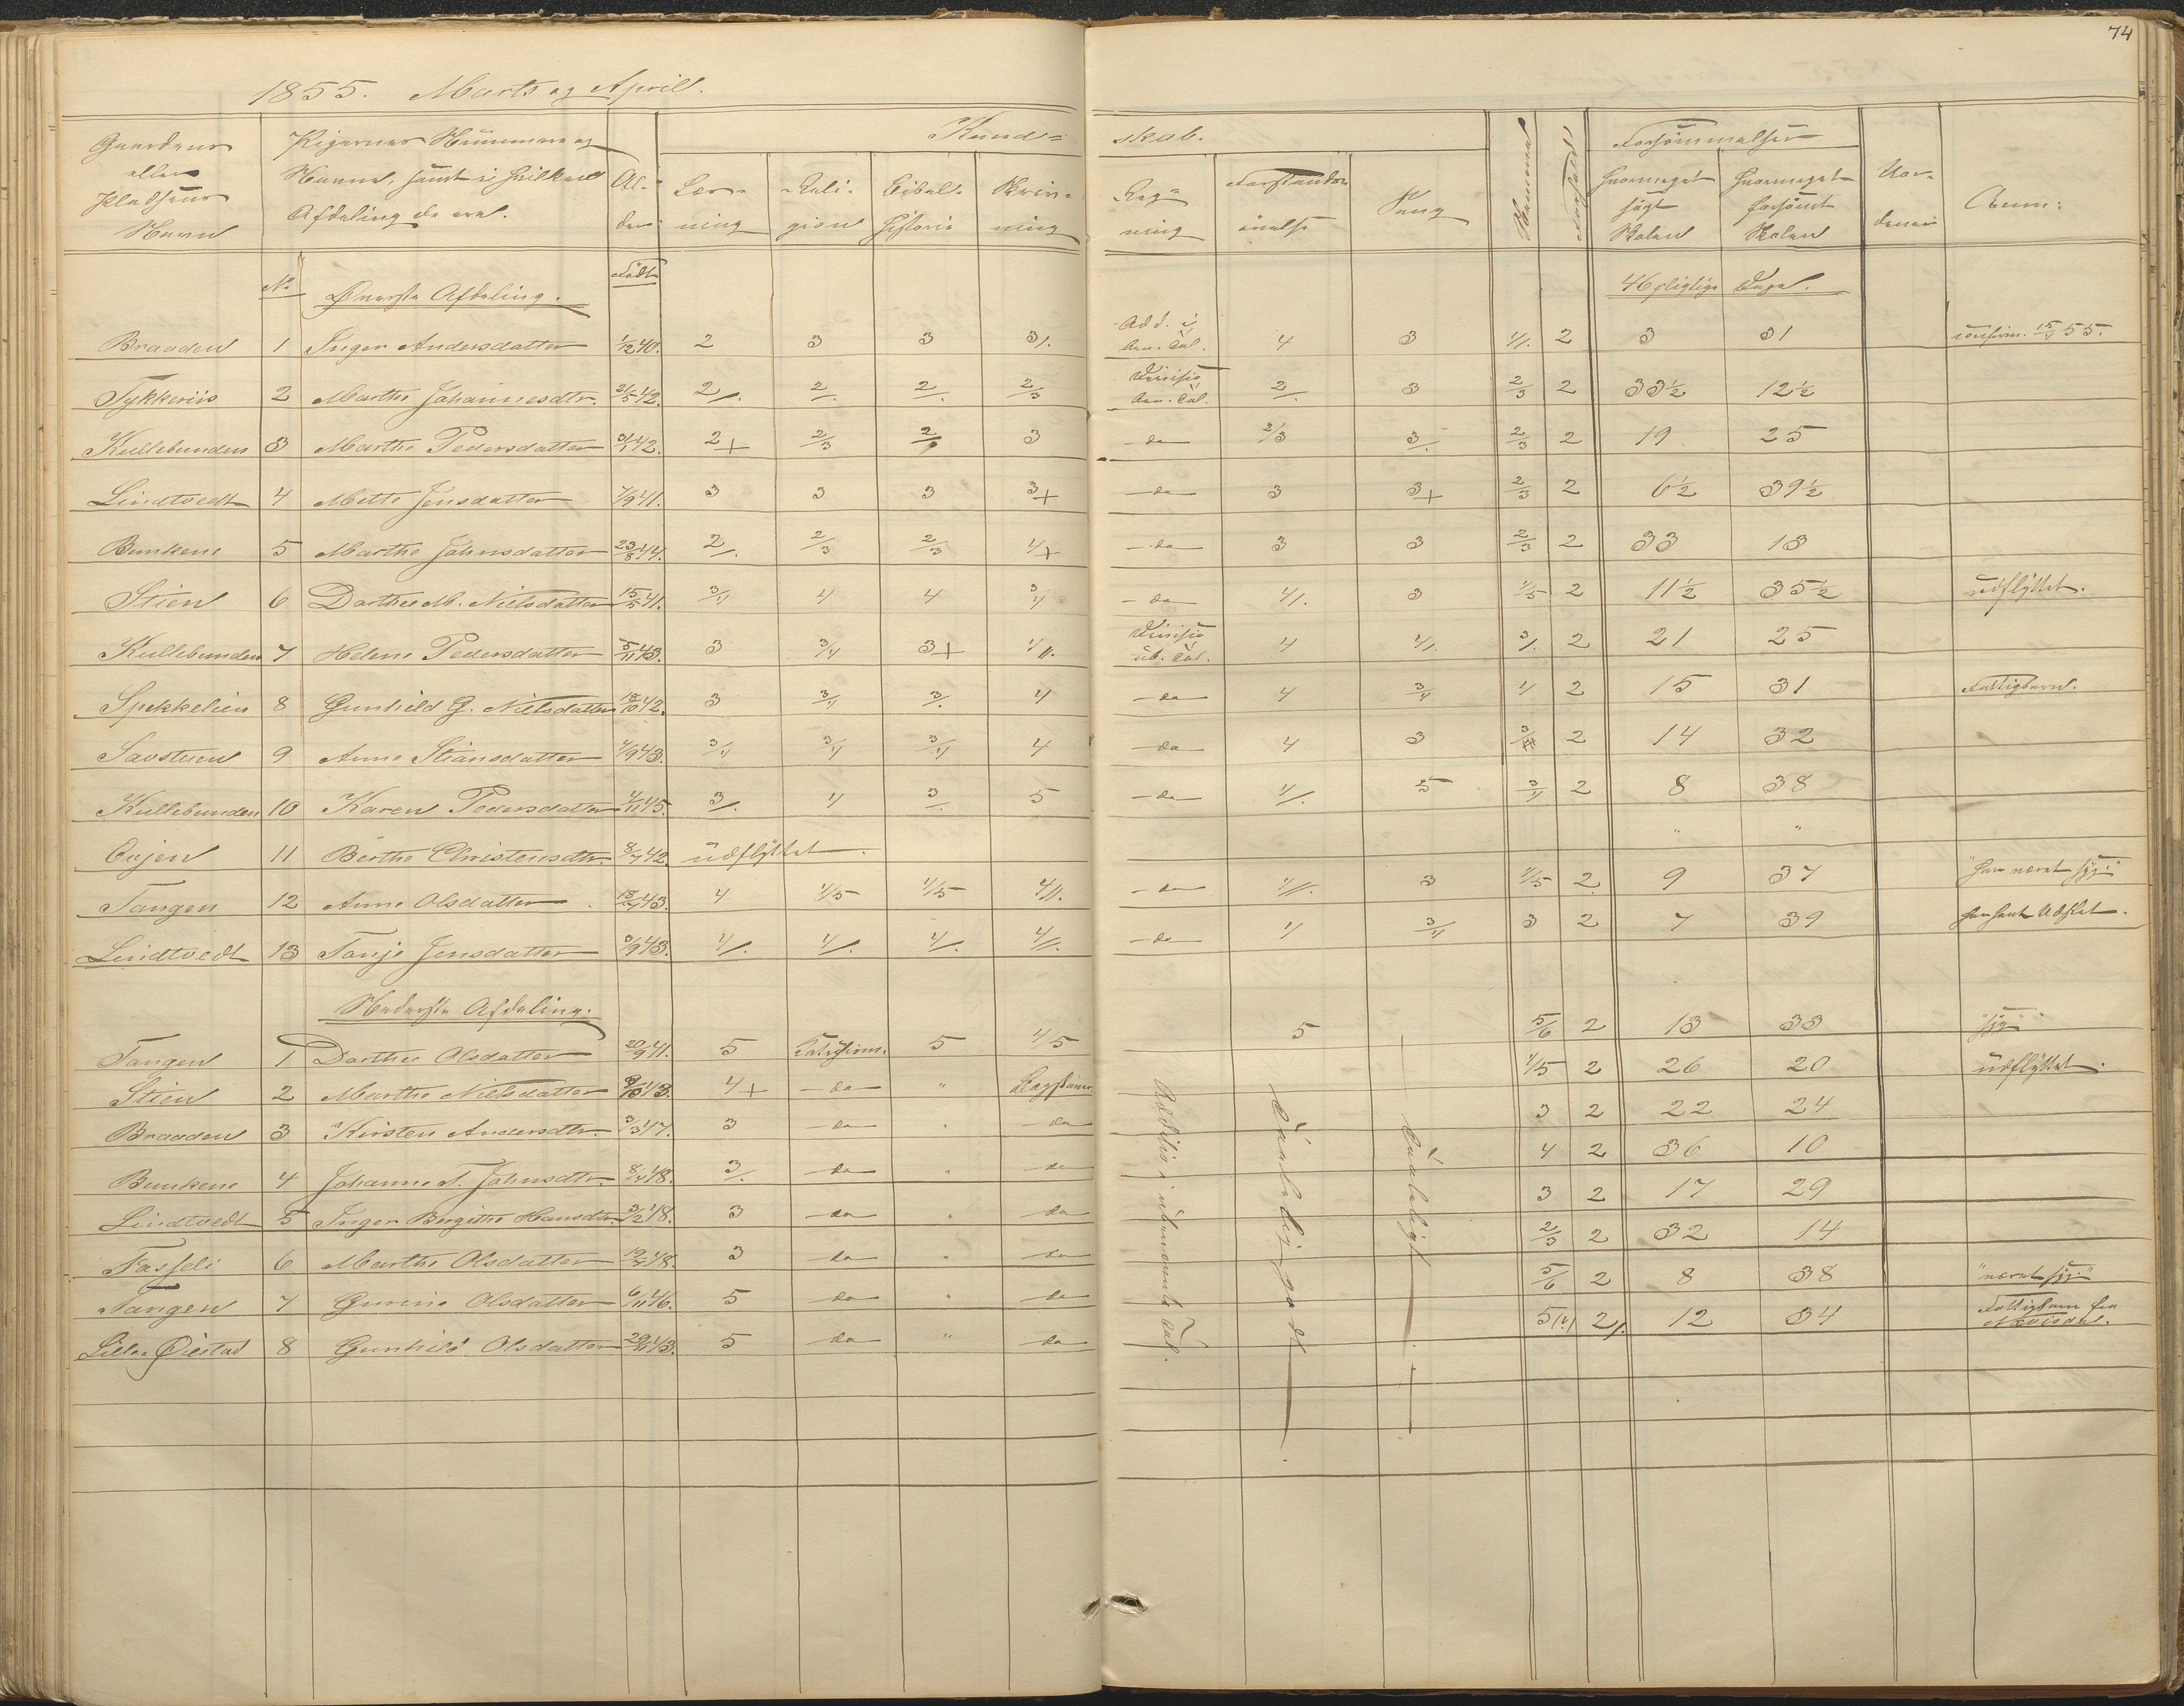 74
1855. Marts og April.
Gaardens eller Pladsens Navn | Pigernes Nummere og Navne, samt i hvilken Afdeling de ere. | Al-der | Kund-skab. | Forsømmelser
Læs-ning | Reli-gion | Bibel-historie | Skriv-ning | Reg-ning | Forstands-øvelse | Sang | Hovmegt søgt Skolen | hvormeget forsømt Skolen | Anm:
No | Øverste Afdeling. | Født | 46 pligtige Dage.
Braaden 1 Inger Andersdatter 1/12 40. 2 3 3 3/. Add. i Ben. Tal. 4 3 4/. 2 3 31 confirm. 15/4 55.
Tykkeriis 2 Marthe Johannesdtr. 21/5 42. 2/. 2/. 2/. 2/3 Divisio Ben. Tal. 2/. 3 2/3 2 33½ 12½
Kullebunden 3 Marthe Pedersdatter 31/1 42. 2+ 2/3 2/. 3 do 2/3 3/. 2/3 2 19 25
Lindtvedt 4 Mette Jensdatter 7/9 41. 3 3 3 3+ do 3 3+ 2/3 2 6½ 39½
Bunkene 5 Marthe Johnsdatter 23/8 44. 2/. 2/3 2/3 4+ do 3 3 2/3 2 33 13
Stien 6 Dorthe M. Nielsdatter 15/5 41. 3/4 4 4 3/4 do 4/. 3 4/5 2 11½ 35½ udflyttet.
Kullebunden 7 Helene Pedersdatter 5/11 43. 3 3/4 3+ 4//. Divisio ub. Tal. 4 4/. 3/. 2 21 25
Spekkelien 8 Gunhild G. Nielsdatter 18/10 42. 3 3/4 3/. 4 do 4 3/4 4 2 15 31 Fattigbarn.
Savstuen 9 Anne Stiansdatter 4/9 43. 3/4 3/4 3/4 4 do 4 3 3/4 2 14 32
Kullebunden 10 Karen Pedersdatter 4/11 45. 3/. 4 3/. 5 do 4/. 5 3/4 2 8 38
11 Berthe Christensdtr. 8/7 42. udflyttet. " "
Tangen 12 Anne Olsdatter 18/4 43. 4 4/5 4/5 4//. do 4//. 3 4/5 2 9 37 "har været syg:"
Lindtvedt 13 Tanje Jensdatter 3/9 43. 4/. 4/. 4/. 4//. do 4 3/4 3 2 7 39
Nederste Afdeling.
Tangen 1 Dorthe Olsdatter 20/9 41. 5 5 4/5 5 5/6 2 13 33 "syg"
Stien 2 Marthe Nielsdatter 9/10 43. 4+ do " 4/5 2 26 20 udflyttet.
Braaden 3 Kirsten Andersdtr. 3/3 47. 3 do " do 3 2 22 24
Bunkene 4 Johanne T. Johnsdtr. 8/4 48. 3/. do " do 4 2 36 10
Lindtvedt 5 Inger Birgithe Hansdtr. 3/2 48. 3 do " do 3 2 17 29
Fasseli 6 Marthe Olsdatter 12/5 48. 3 do " do 2/3 2 32 14
Tangen 7 Gurine Olsdatter 6/11 46. 5 do " do 5/6 2 8 38 "været syg:"
Lille Øiestad 8 Gunhild Olsdatter 29/11 43. 5 do " do 2/. 12 34 Fattigbarn fra
Additio i ubenævnte Tal.